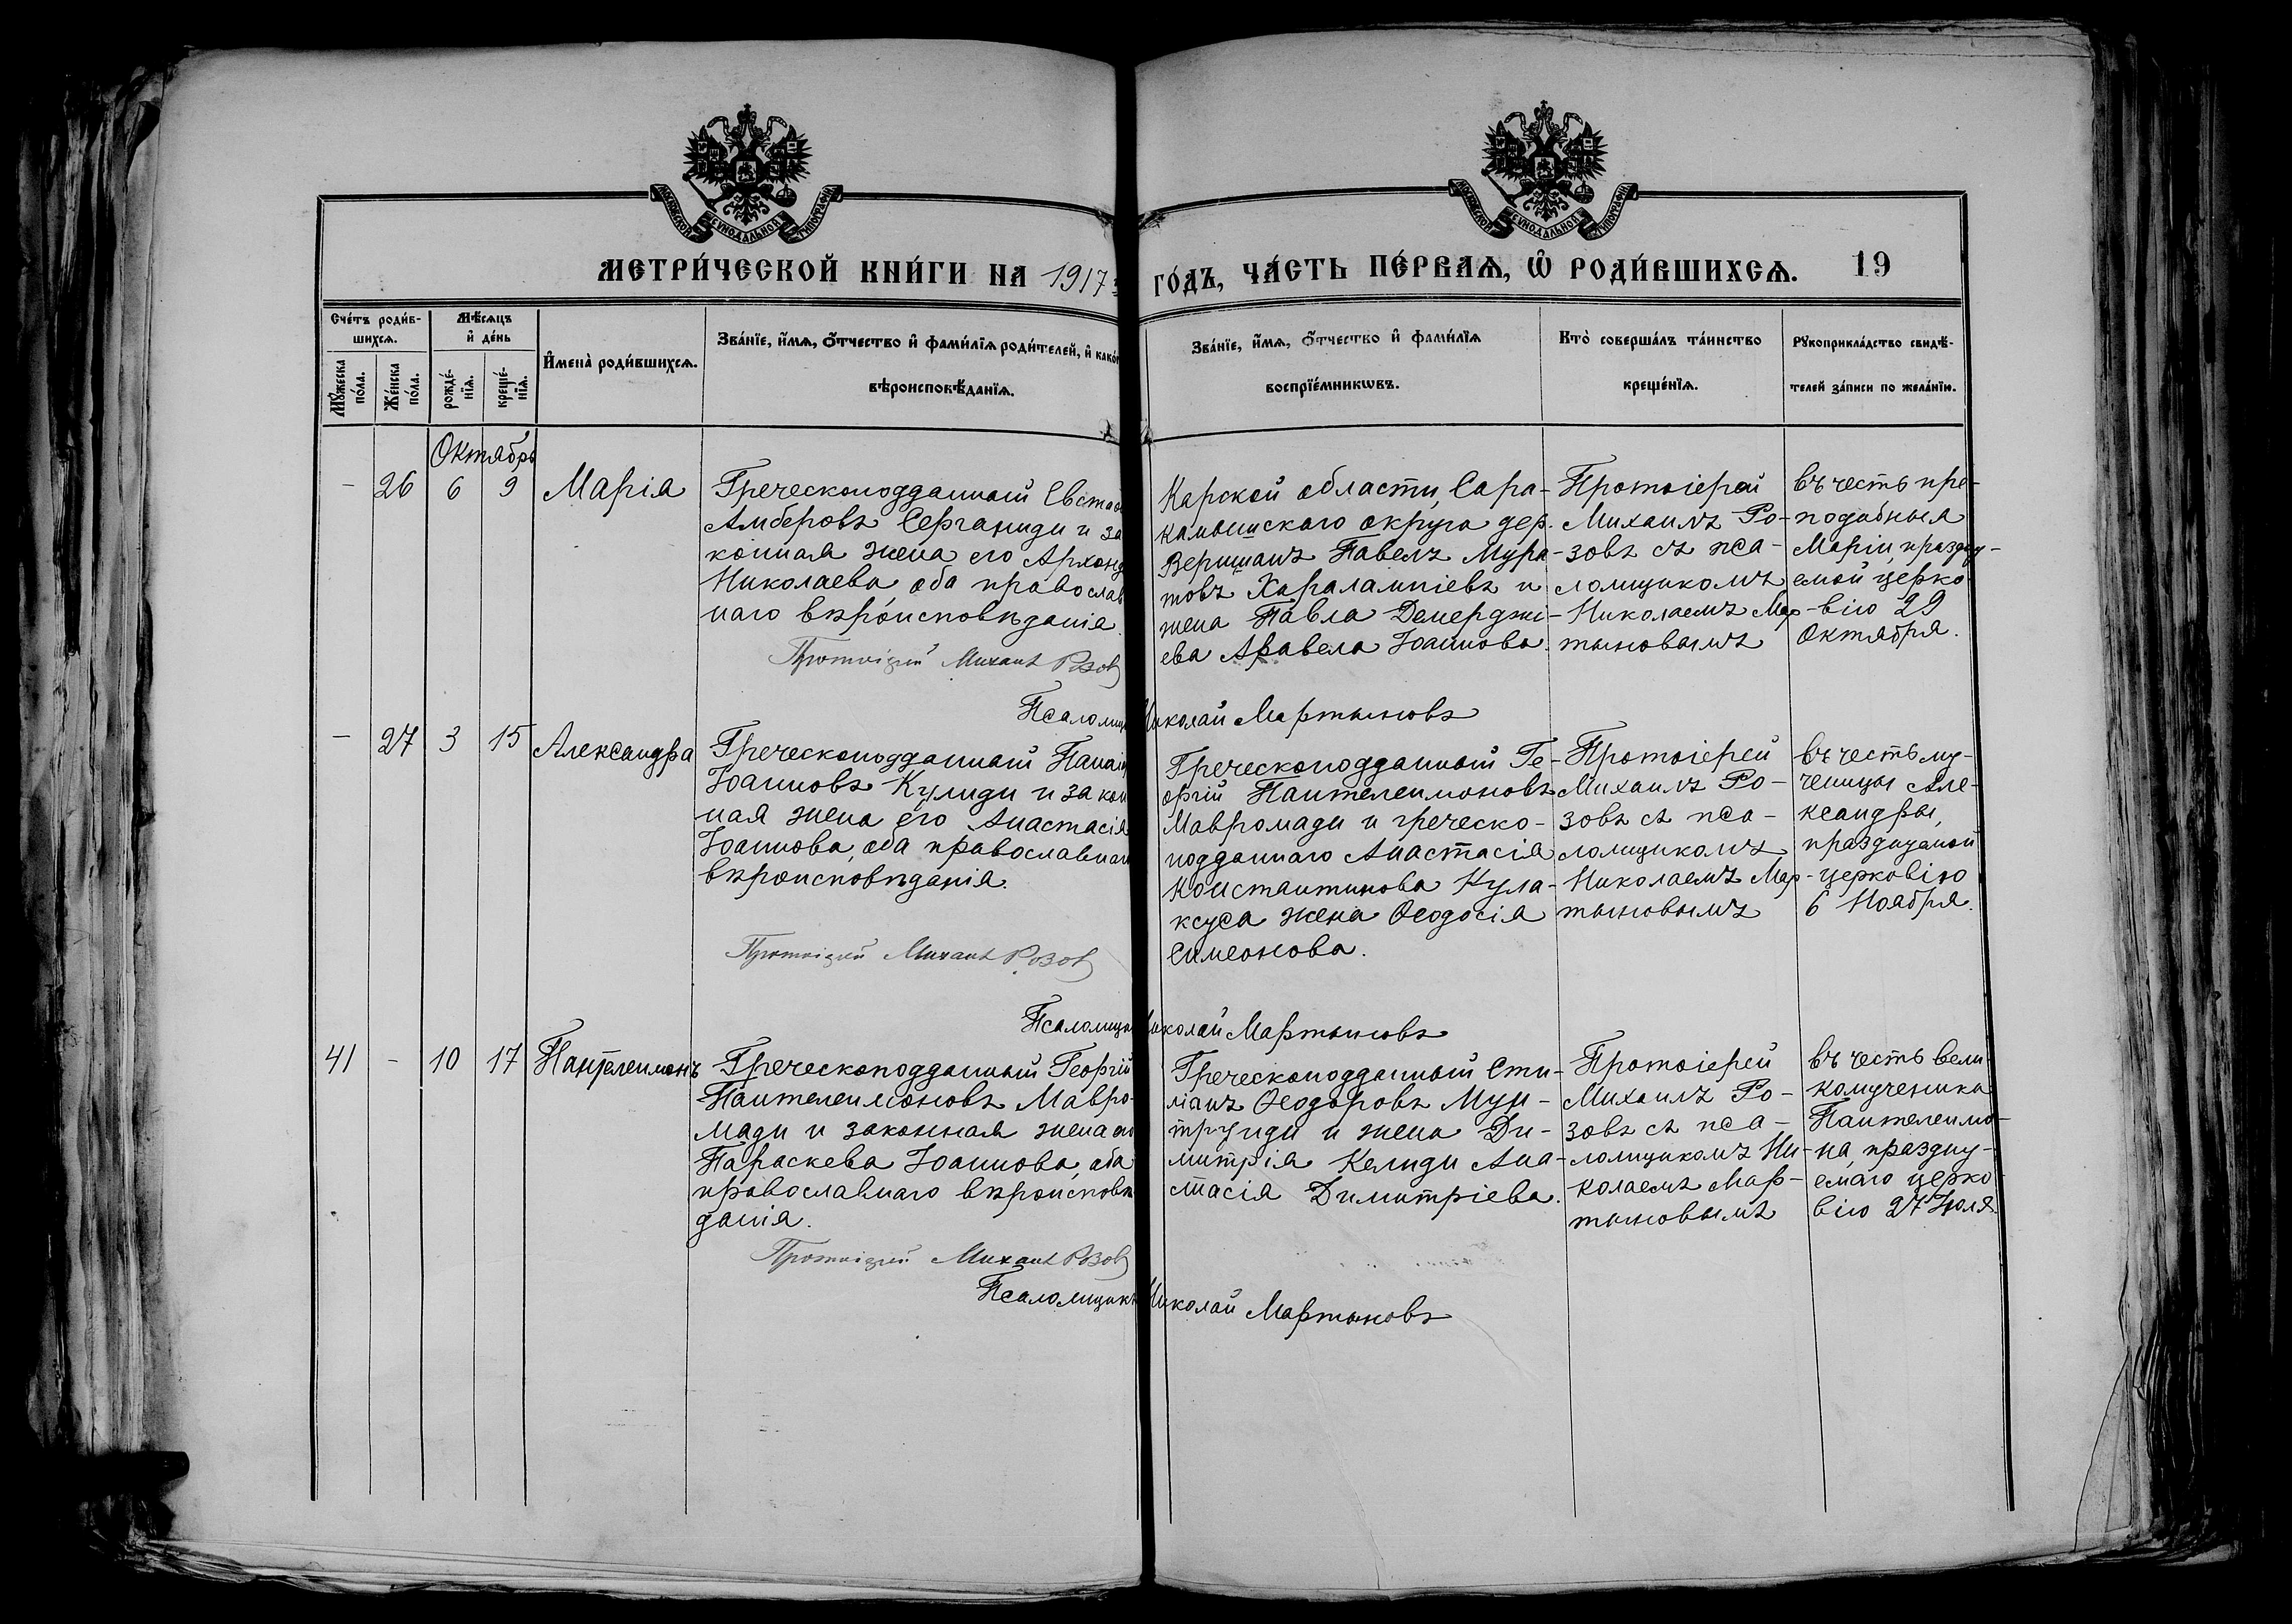 МОСКОВСКОЙ СѴНОДАЛЬНОЙ ТИПОГРАФІИ
МОСКОВСКОЙ СѴНОДАЛЬНОЙ ТИПОГРАФІИ
МЕТРИ́ЧЕСКОЙ КНИ́ГИ НА 1917
ГО́ДЪ, ЧА́СТЬ ПЕ́РВАѦ, Ѡ РОДИ́ВШИХСѦ. 19
Сче́тъ роди́в-
шихсѧ.
Мꙋ́жеска
по́ла.
Же́нска
по́ла.
Мѣ́сѧцъ
и҆ де́нь
рожде́-
нїѧ.
креще́-
нїѧ.
И҆мена̀ роди́вшихсѧ.
Зва́нїе, и҆́мѧ, ѻ҆́тчество и҆ фами́лїѧ роди́телей, и҆ како́
вѣроисповѣ́данїѧ.
Зва́нїе, и҆́мѧ, ѻ҆́тчество и҆ фами́лїѧ
воспрїе́мникѡвъ.
Кто̀ соверша́лъ та́инство
креще́нїѧ.
Рꙋкоприкла́дство свидѣ́-
телей за́писи по жела́нїю.
Октябрь
- 26 6 9 Марія
Греческоподданный Евстаѳ
Амберовъ Серганиди и за
конная жена его Архонд
Николаева оба православ
наго вѣроисповѣданія.
Протоіерей Михаилъ Розовъ
Карской области, Сара-
камышскаго округа дер.
Веришанъ Павелъ Мура-
товъ Харалампіевъ и
жена Павла Демерджі-
ева Аравела Іоаннова.
Протоіерей
Михаилъ Ро-
зовъ съ пса-
ломщикомъ
Николаемъ Мар-
тыновымъ
въ честь пре-
подобныя
Маріи, праздну-
емой церко-
вію 29
Октября.
Псаломщ Николай Мартыновъ
- 27 3 15 Александра
Греческоподданный Панаі
Іоанновъ Кулиди и закон
ная жена его Анастасія
Іоаннова, оба православнаг
вѣроисповѣданія.
Протоіерей Михаилъ Розовъ
Греческоподданный Ге-
оргій Пантелеимоновъ
Мавромади и греческо-
подданнаго Анастасія
Константинова Кула-
ксуса жена Ѳеодосія
Симеонова.
Протоіерей
Михаилъ Ро-
зовъ съ пса-
ломщикомъ
Николаемъ Мар-
тыновымъ
въ честь му-
ченицы Але-
ксандры,
празднуемой
церковію
6 Ноября.
Псаломщ Николай Мартыновъ
41 - 10 17 Пантелеимонъ
Греческоподданный Георгій
Пантелеимоновъ Мавро-
мади и законная жена его
Параскева Іоаннова, оба
православнаго вѣроисповѣ
данія.
Протоіерей Михаилъ Розовъ
Греческоподданный Сти-
ліанъ Ѳеодоровъ Мун-
тружди и жена Ди-
митрія Келиди Ана-
стасія Димитріева.
Протоіерей
Михаилъ Ро-
зовъ съ пса-
ломщикомъ Ни-
колаемъ Мар-
тыновымъ
въ честь вели-
комученика
Пантелеимо-
на, праздну-
емаго церко-
вію 27 Іюля.
Псаломщикъ Николай Мартыновъ